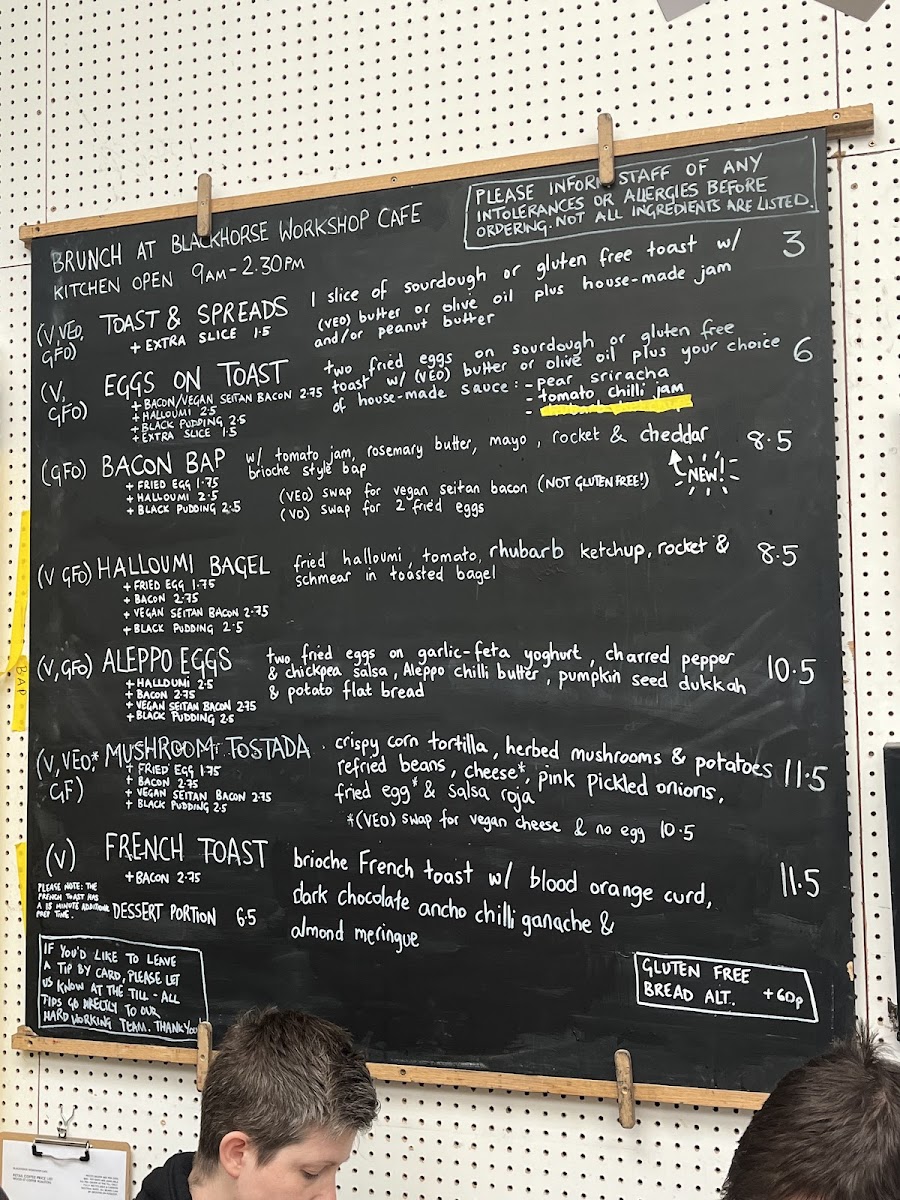 PLEASE INFORM STAFF OF ANY
INTOLERANCES OR ALLERGIES BEFORE
ORDERING. NOT ALL INGREDIENTS ARE LISTED.
BRUNCH AT BLACKHORSE WORKSHOP CAFE
KITCHEN OPEN 9AM-2.30PM
(V, VEO, GFO)
TOAST & SPREADS
+ EXTRA SLICE 1.5
1 slice of sourdough or gluten free toast w/
(VEO) butter or olive oil plus house-made jam
and/or peanut butter
3
(V, GFO)
EGGS ON TOAST
+ BACON/VEGAN SEITAN BACON 2.75
+ HALLOUMI 2.5
+ BLACK PUDDING 2.5
+ EXTRA SLICE 1.5
two fried eggs on sourdough or gluten free
toast w/ (VEO) butter or olive oil plus your choice
of house-made sauce: - pear sriracha
- tomato chilli jam
-
6
(GFO) BACON BAP
+ FRIED EGG 1.75
+ HALLOUMI 2.5
+ BLACK PUDDING 2.5
w/ tomato jam, rosemary butter, mayo, rocket & cheddar
brioche style bap
(VEO) swap for vegan seitan bacon (NOT GLUTEN FREE!)
(VO) swap for 2 fried eggs
NEW!
8.5
(V GFO) HALLOUMI BAGEL
+ FRIED EGG 1.75
+ BACON 2.75
+ VEGAN SEITAN BACON 2.75
+ BLACK PUDDING 2.5
fried halloumi, tomato, rhubarb ketchup, rocket &
schmear in toasted bagel
8.5
(V, GFO) ALEPPO EGGS
+ HALLOUMI 2.5
+ BACON 2.75
+ VEGAN SEITAN BACON 2.75
+ BLACK PUDDING 2.5
two fried eggs on garlic-feta yoghurt, charred pepper
& chickpea salsa, Aleppo chilli butter, pumpkin seed dukkah
& potato flat bread
10.5
BAP
(V, VEO,* GF)
MUSHROOM TOSTADA
+ FRIED EGG 1.75
+ BACON 2.75
+ VEGAN SEITAN BACON 2.75
+ BLACK PUDDING 2.5
crispy corn tortilla, herbed mushrooms & potatoes
refried beans, cheese*, pink pickled onions,
fried egg* & salsa roja
*(VEO) swap for vegan cheese & no egg 10.5
11.5
(V) FRENCH TOAST
+ BACON 2.75
PLEASE NOTE: THE
FRENCH TOAST HAS
A 15 MINUTE ADDITIONAL
PREP TIME.
DESSERT PORTION 6.5
brioche French toast w/ blood orange curd,
dark chocolate ancho chilli ganache &
almond meringue
11.5
IF YOU'D LIKE TO LEAVE
A TIP BY CARD, PLEASE LET
US KNOW AT THE TILL - ALL
TIPS GO DIRECTLY TO OUR
HARD WORKING TEAM. THANKYOU
GLUTEN FREE
BREAD ALT. +60p